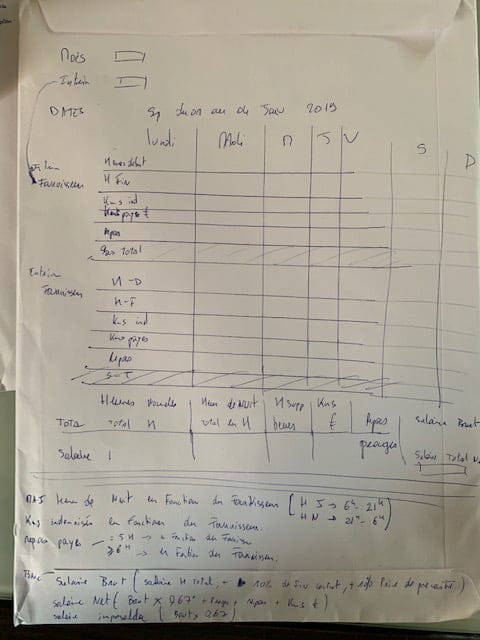 Mois
Interim
DATES Sp du 01 au de Juin 2019
lundi Mdi M J V S D
Interim Heures début
Fournisseur H Fin
Kms ind
Kms payes €
Repas
Sous Total
Interim H-D
Fournisseur H-F
Kms ind
Kms payes
Repas
S-T
Heures Normales Heures de Nuit H Supp Kms Repas Salaire Brut
Total Total H Total en H heures € peages
Salaire Salaire Total
MAJ Heures de Nuit en Fonction du Fournisseur [H J → 6H - 21H
H N → 21H - 6H]
Kms indemnisés en Fonction du Fournisseur.
repas payes 5H → en Fonction du
≥6H → en Fonction des Fournisseurs.
Base Salaire Brut (salaire H Total, + 10% de Fin contrat, + 10% Prime de précarité)
Salaire Net (Brut x 0.67 + Repas + Kms €)
salaire imposable (Brut x 0.67)